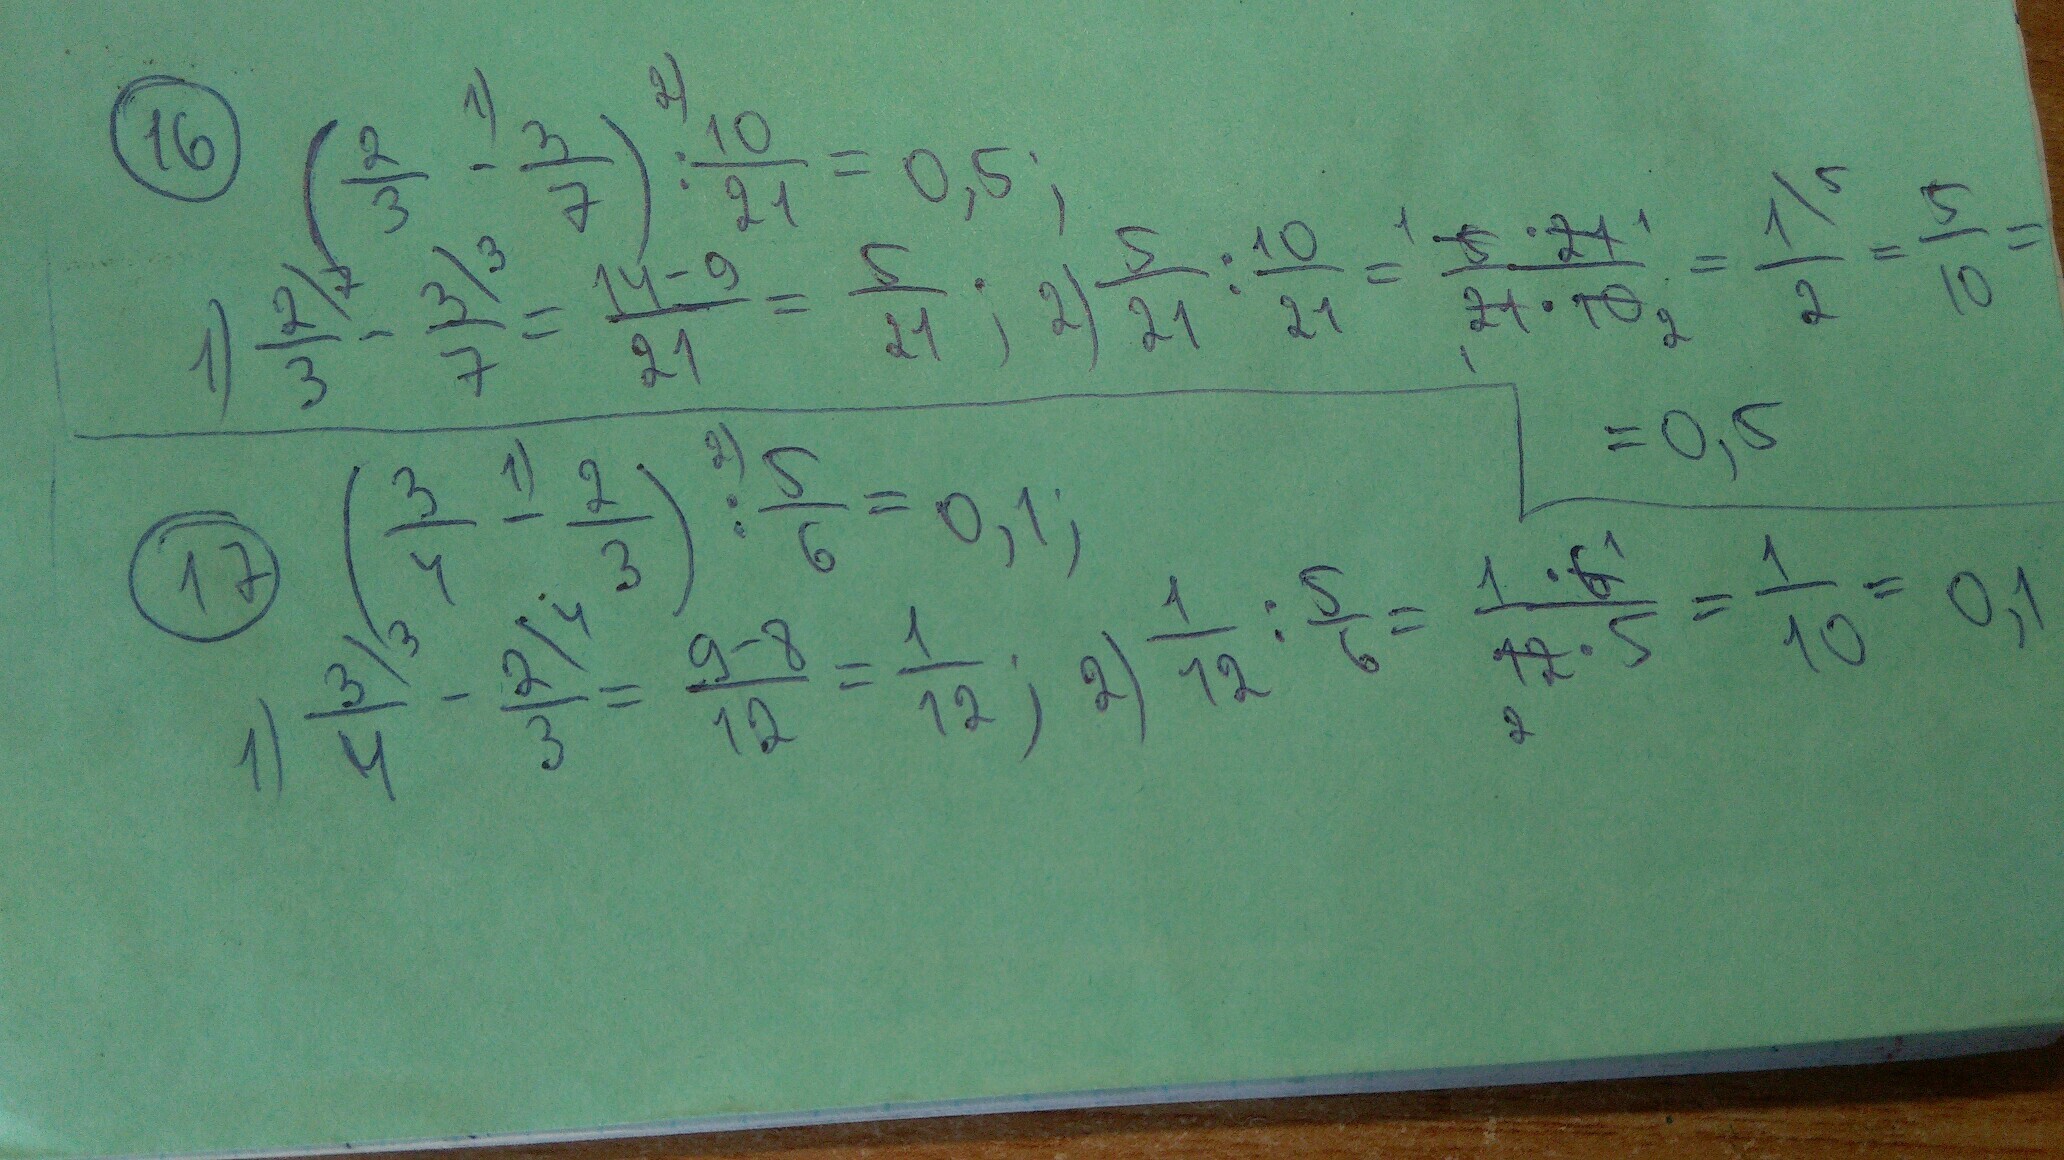 16 (2/3 1) - 3/7) 2) : 10/21 = 0,5;
1) 2/3 \7 - 3/7 \3 = 14-9/21 = 5/21; 2) 5/21 : 10/21 = 1 5 · 21 1/21 1 · 10 2 = 1/2 \5 = 5/10 =
= 0,5
17 (3/4 1) - 2/3) 2) : 5/6 = 0,1;
1) 3/4 \3 - 2/3 \4 = 9-8/12 = 1/12; 2) 1/12 : 5/6 = 1 · 6 1/12 2 · 5 = 1/10 = 0,1